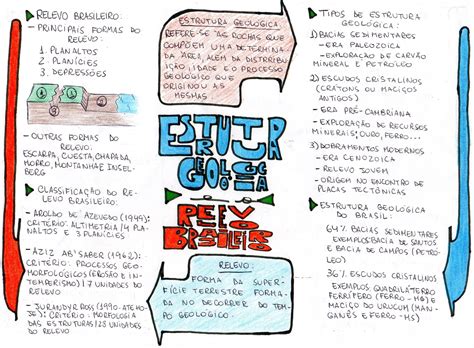 RELEVO BRASILEIRO:
- PRINCIPAIS FORMAS DO
RELEVO:
1. PLANALTOS
2. PLANÍCIES
3. DEPRESSÕES
1
2
3
- OUTRAS FORMAS DO
RELEVO:
ESCARPA, CUESTA, CHAPADA,
MORRO, MONTANHA E INSEL-
BERG
CLASSIFICAÇÃO DO RE
LEVO BRASILEIRO:
- AROLDO DE AZEVEDO (1949):
CRITÉRIO: ALTIMETRIA/4 PLA
NALTOS E 3 PLANÍCIES
- AZIZ AB' SABER (1962):
CRITÉRIO: PROCESSOS GEO-
MORFOLÓGICOS (EROSÃO E IN-
TEMPERISMO) 7 UNIDADES DO
RELEVO
- JURANDYR ROSS (1990-ATÉ HO-
JE): CRITÉRIO - MORFOLOGIA
DAS ESTRUTURAS/28 UNIDADES
DO RELEVO
ESTRUTURA GEOLÓGICA
REFERE-SE ÀS ROCHAS QUE
COMPÕEM UMA DETERMINA
DA ÁREA, ALÉM DA DISTRIBU
IÇÃO, IDADE E O PROCESSO
GEOLÓGICO QUE
ORIGINOU AS
MESMAS
ESTRUTURA
GEOLÓGICA
RELEVO
BRASILEIRO
RELEVO:
FORMA DA SUPER-
FÍCIE TERRESTRE FORMA
DA NO DECORRER DO TEM
PO GEOLÓGICO.
TIPOS DE ESTRUTURA
GEOLÓGICA:
1) BACIAS SEDIMENTARES
- ERA PALEOZOICA
- EXPLORAÇÃO DE CARVÃO
MINERAL E PETRÓLEO
2) ESCUDOS CRISTALINOS
(CRATONS OU MACIÇOS
ANTIGOS)
- ERA PRÉ-CAMBRIANA
- EXPLORAÇÃO DE RECURSOS
MINERAIS: OURO, FERRO...
3) DOBRAMENTOS MODERNOS
- ERA CENOZOICA
- RELEVO JOVEM
- ORIGEM NO ENCONTRO DE
PLACAS TECTÔNICAS
ESTRUTURA GEOLÓGICA
DO BRASIL:
64% BACIAS SEDIMENTARES
EXEMPLOS: BACIA DE SANTOS
E BACIA DE CAMPOS (PETRÓ-
LEO)
36% ESCUDOS CRISTALINOS
EXEMPLOS: QUADRILÁTERO
FERRÍFERO (FERRO - MG) E
MACIÇO DO URUCUM (MAN-
GANÊS E FERRO - MS)